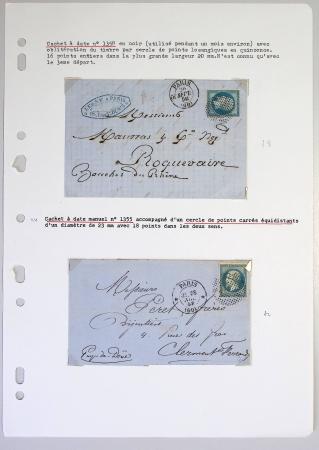 Cachet à date n° 1398 en noir (utilisé pendant un mois environ) avec
oblitération du timbre par cercle de points losangiques en quinconce.
16 points entiers dans la plus grande largeur 20 mm.N'est connu qu'avec
le 3eme départ.
PARIS
SEPT.
(60)
Messieurs
Maurras & Cie
Roquevaire
Bouches du Rhône
Cachet à date manuel n° 1355 accompagné d'un cercle de points carrés équidistants
d'un diamètre de 23 mm avec 18 points dans les deux sens.
PARIS
(60)
Messieurs
Peret frères
Bijoutiers
4 Rue des Gras
Puy de Dôme
Clermont Ferrand